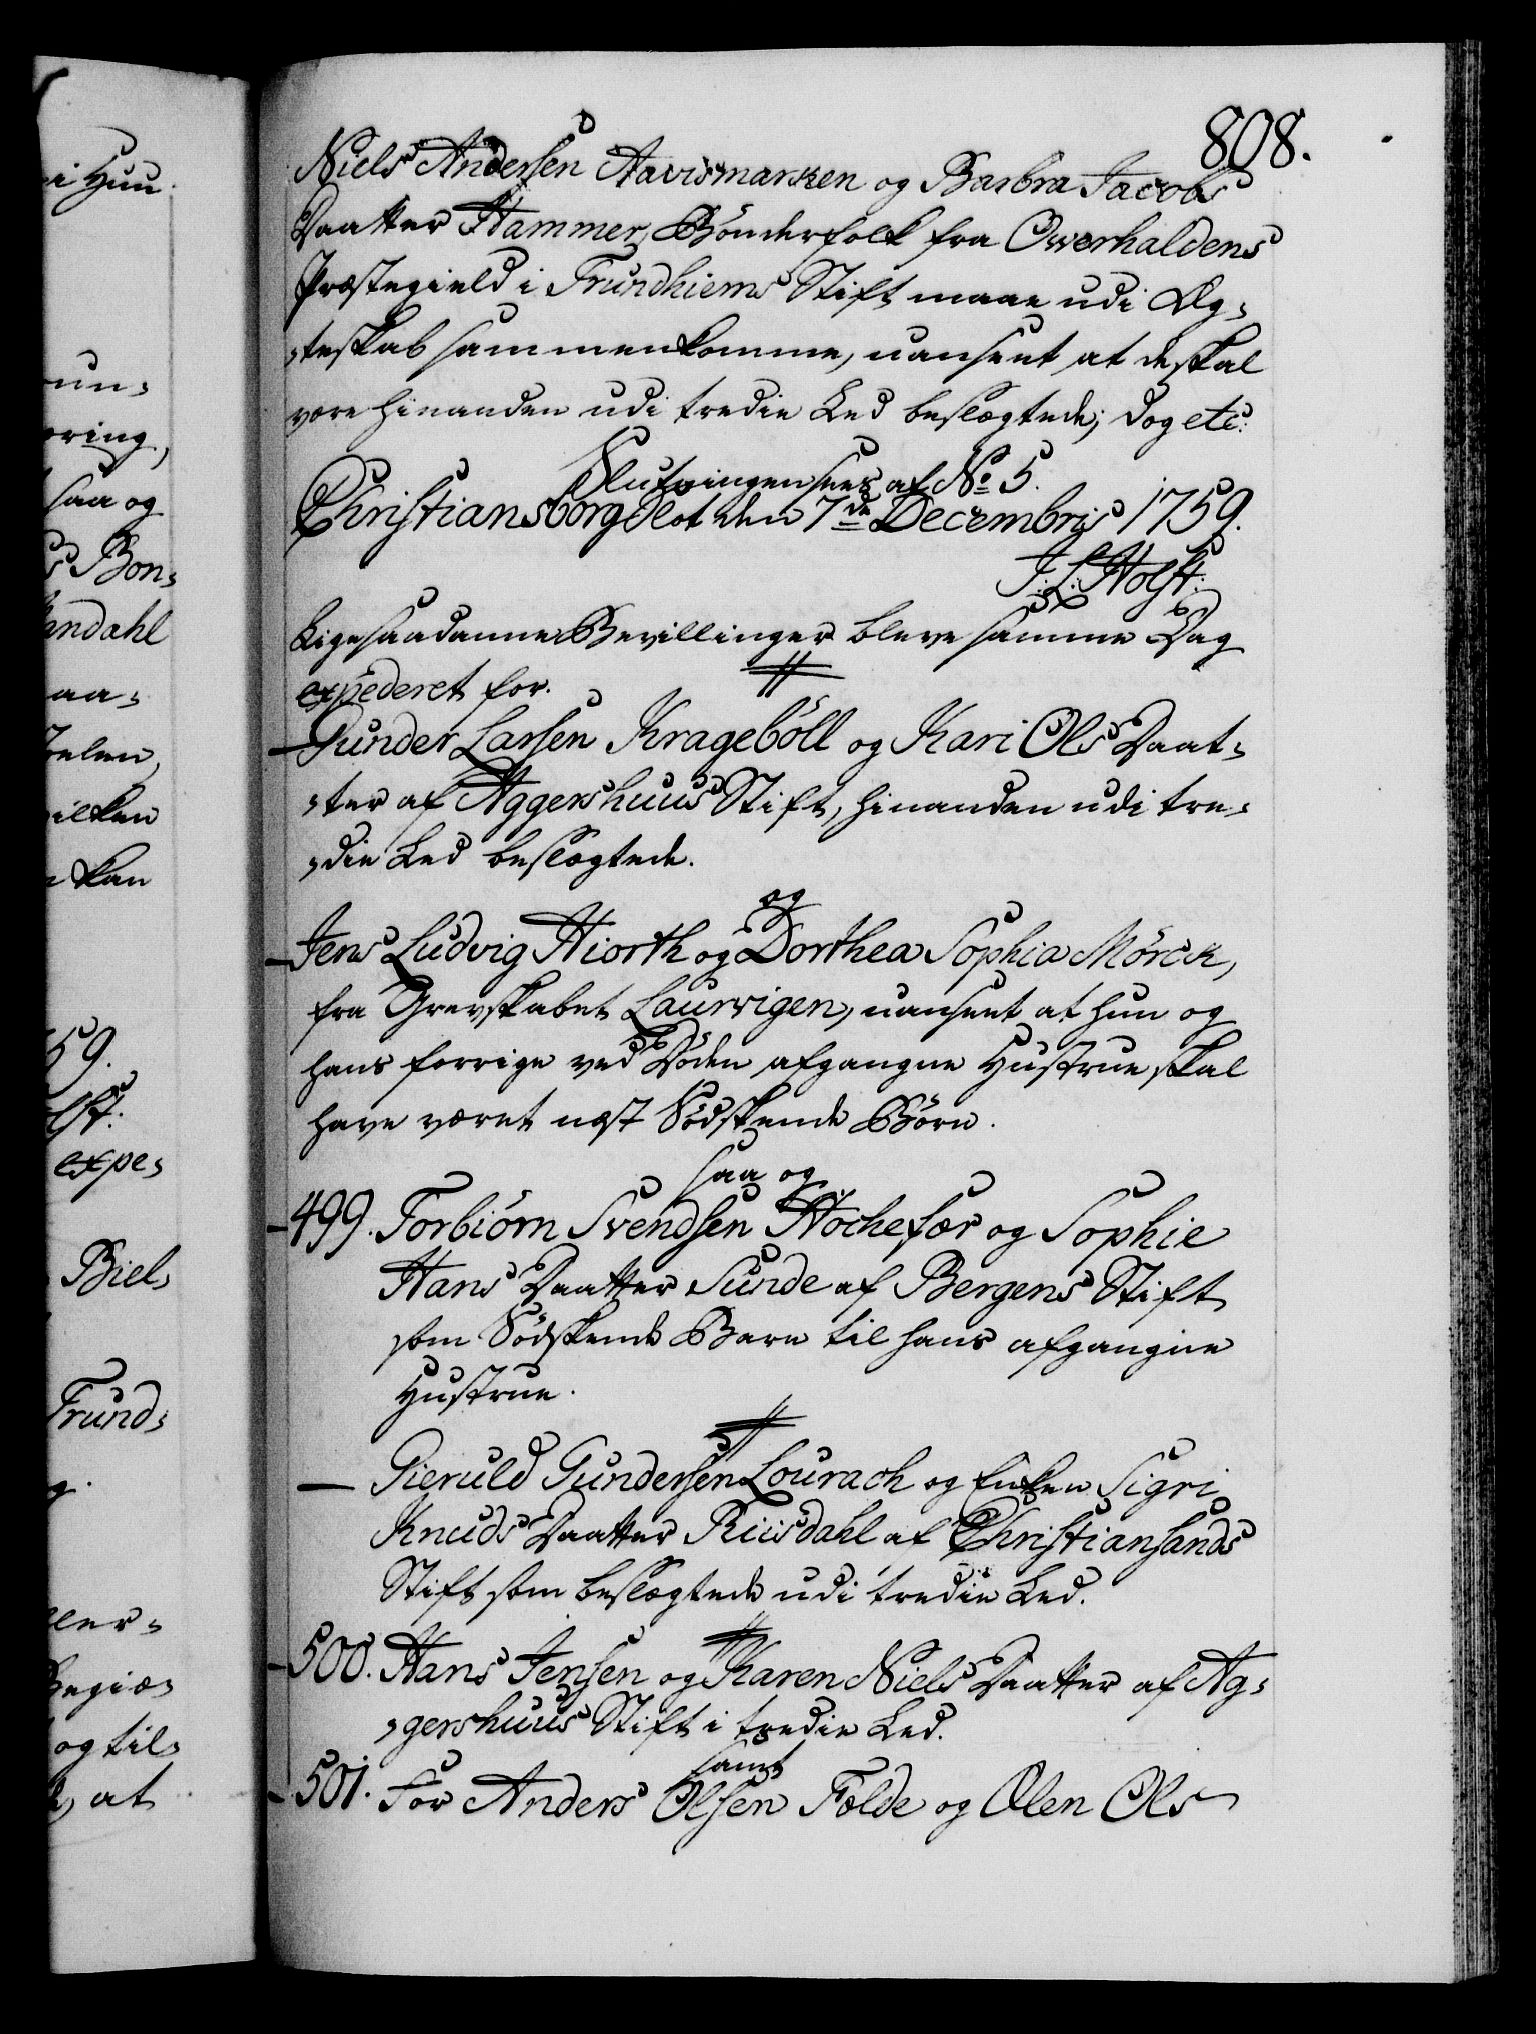 808.
Niels Andersen Aavismarken og Barbra Jacobs
Daatter Hammer, Bönderfolk fra Owerhaldens
Præstegield i Trundhiems Stift maae udi Æg-
-teskab sammenkomme, uanseet at de skal
være hinanden udi tredie Led beslægtede; dog etc:
Slutningen sees af No. 5.
Christiansborg Slot den 7de Decembris 1759.
J: L: Holst:
Ligesaadanne Bevillinger bleve samme Dag
expederet for.
Gunder Larsen Krageböll og Kari Ols Daat-
-ter af Aggershuus Stift, hinanden udi tre-
-die Led beslægtede.
og
Jens Ludvig Hiorth og Dorthea Sophia Mörck,
fra Grevskabet Laurvigen, uanseet at hun og
hans forrige ved Döden afgangne Hustrue skal
have været næst Södskende Börn.
saa og
499. Torbiörn Svendsen Höchefær og Sophie
Hans Daatter Sunde af Bergens Stift
som Södskende Barn til hans afgangne
Hustrue.
Gieruld Gundersen Lourach og Enken Sigri
Knuds Daatter Riisdahl af Christiansands
Stift som beslægtede udi tredie Led.
500. Hans Jensen og Karen Niels Daatter af Ag-
-gershuus Stift i tredie Led.
samt
501. For Anders Olsen Folde og Olen Ols
i Huu.
run-
øring,
saa og
s Bon-
andahl
aa-
telen,
hvilken
kan
59.
lst:
expe-
Biel-
Trund-
g.
ler-
Begiæ-
og til-
, at